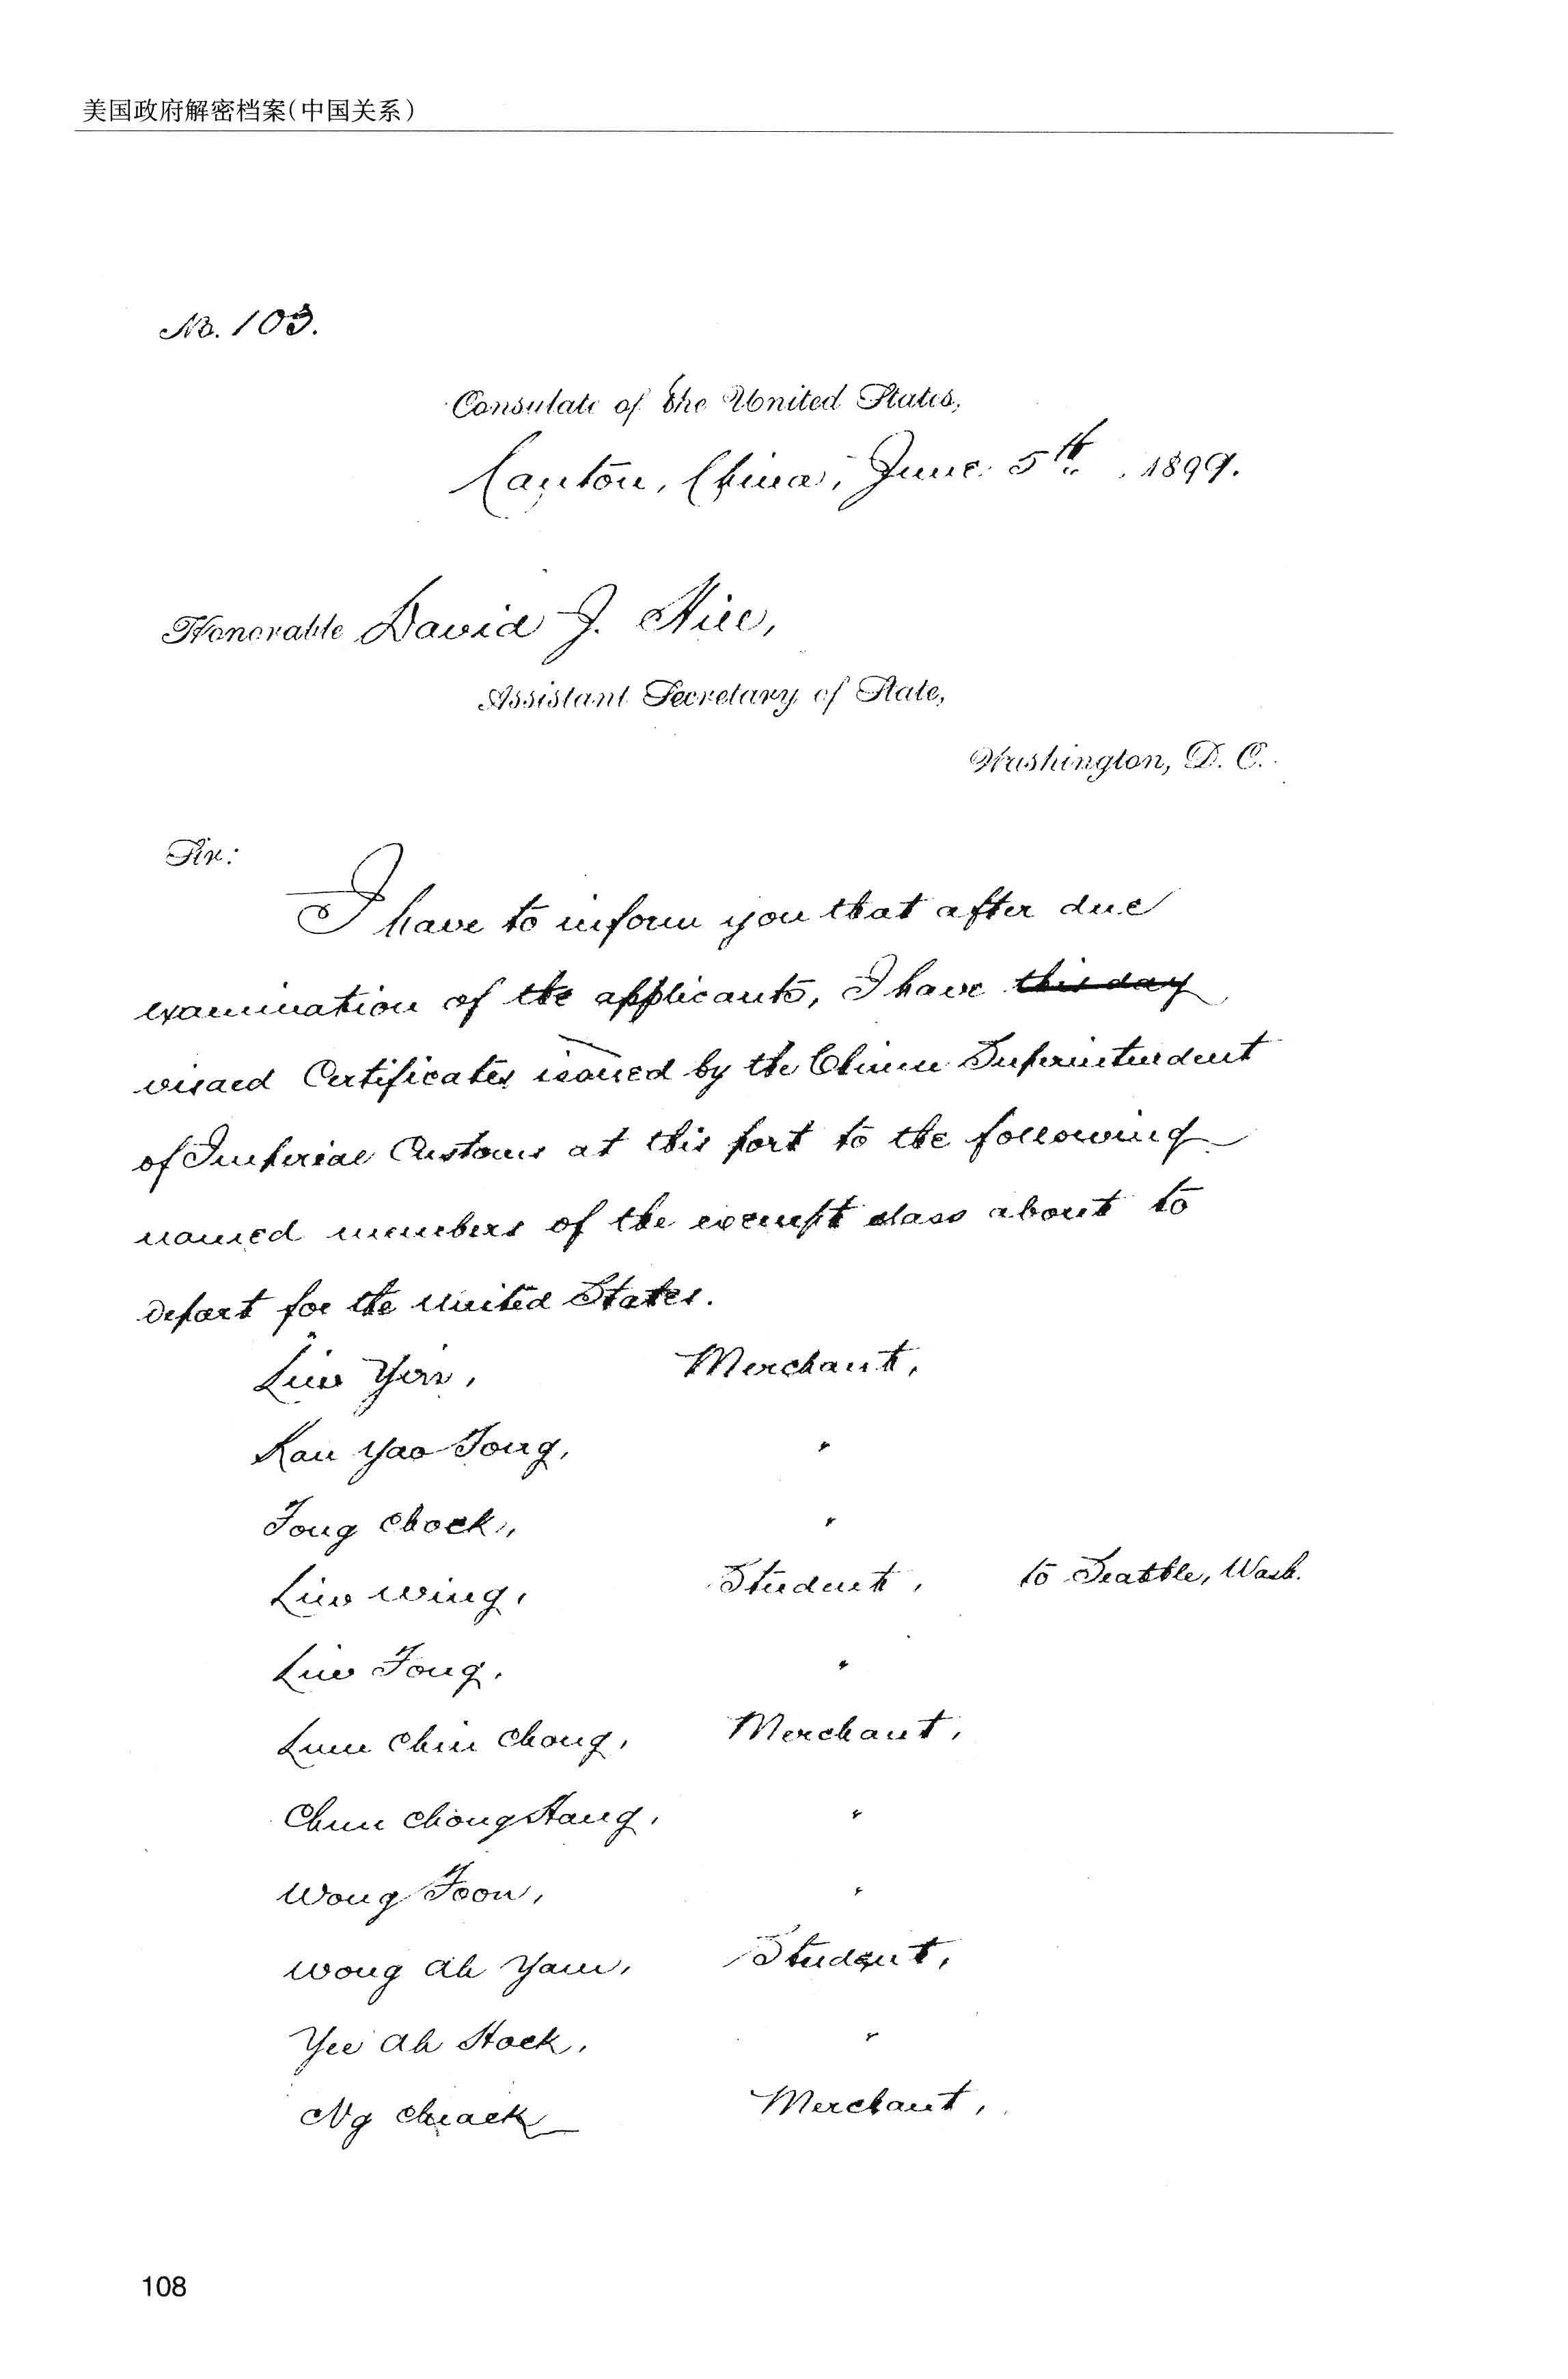 美国政府解密档案(中国关系)
No. 103.
Consulate of the United States,
Canton, China, June 5th, 1899.
Honorable David J. Hill,
Assistant Secretary of State,
Washington, D. C.
Sir:
I have to inform you that after due
examination of the applicants, I have this day
visaed Certificates issued by the Chinese Superintendent
of Imperial Customs at this port to the following
named members of the exempt class about to
depart for the United States.
Liu Yin, Merchant,
Kan Yao Tong, "
Tong Chock, "
Liu Wing, Student, to Seattle, Wash.
Liu Fong, "
Lum Chin Chong, Merchant,
Chun Chong Hang, "
Wong Foon, "
Wong Ah Yam, Student,
Yee Ah Hock, "
Ng Chuack Merchant,
108